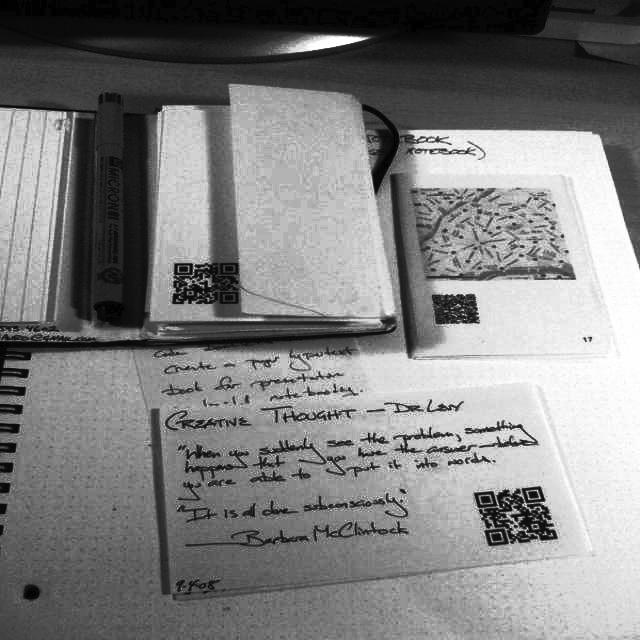 BOOK
NOTEBOOK)
MICRON
17
create a paper hypertext
deck for
build notebooks.
CREATIVE THOUGHT — DR LEVY
"When you suddenly see the problem, something
happens that you have the answer — before
you are able to put it into words.
"It is all done subconsciously"
— Barbara McClintock